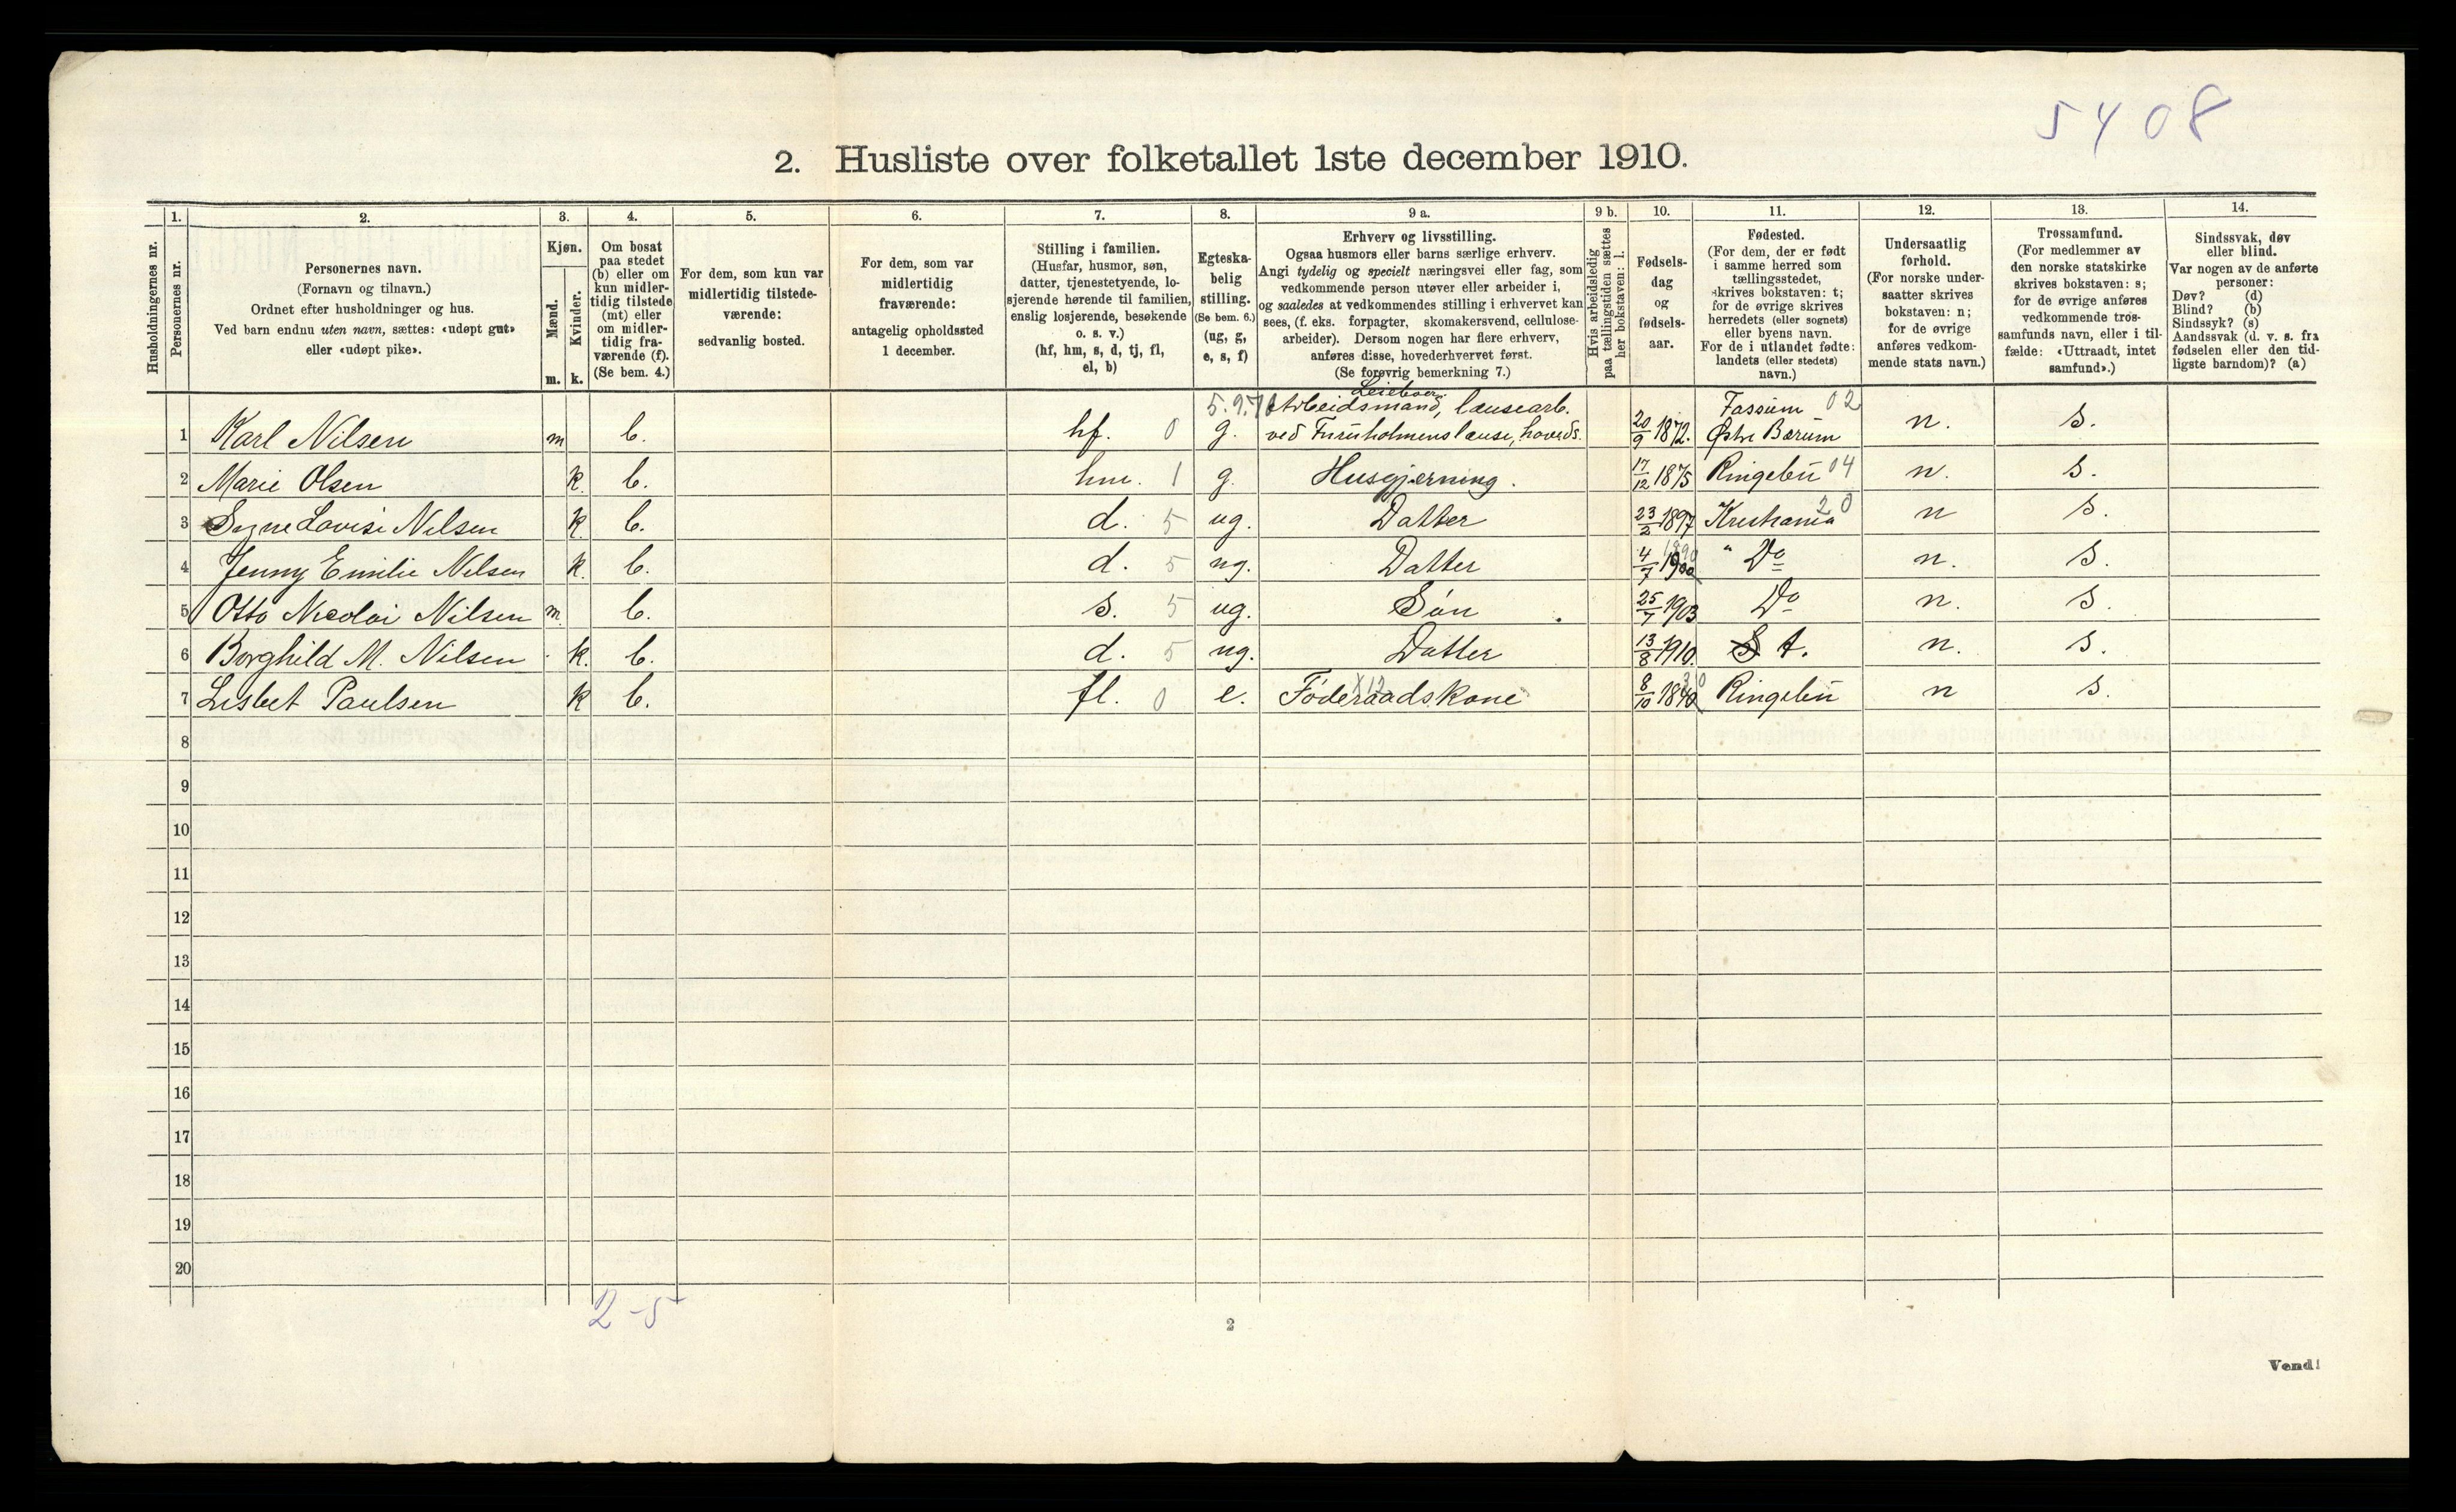 5408
2. Husliste over folketallet 1ste december 1910.
Husholdningernes nr.
1.
Personernes nr.
2.
Personernes navn.
(Fornavn og tilnavn.)
Ordnet efter husholdninger og hus.
Ved barn endnu uten navn, sættes: «udøpt gut»
eller «udøpt pike».
3.
Kjøn.
Mænd.
Kvinder.
m. k.
4.
Om bosat
paa stedet
(b) eller om
kun midler-
tidig tilstede
(mt) eller
om midler-
tidig fra-
værende (f).
(Se bem. 4.)
5.
For dem, som kun var
midlertidig tilstede-
værende:
sedvanlig bosted.
6.
For dem, som var
midlertidig
fraværende:
antagelig opholdssted
1 december.
7.
Stilling i familien.
(Husfar, husmor, søn,
datter, tjenestetyende, lo-
sjerende hørende til familien,
enslig losjerende, besøkende
o. s. v.)
(hf, hm, s, d, tj, fl,
el, b)
8.
Egteska-
belig
stilling.
(Se bem. 6.)
(ug, g,
e, s, f)
9 a.
Erhverv og livsstilling.
Ogsaa husmors eller barns særlige erhverv.
Angi tydelig og specielt næringsvei eller fag, som
vedkommende person utøver eller arbeider i,
og saaledes at vedkommendes stilling i erhvervet kan
sees, (f. eks. forpagter, skomakersvend, cellulose-
arbeider). Dersom nogen har flere erhverv,
anføres disse, hovederhvervet først.
(Se forøvrig bemerkning 7.)
9 b.
Hvis arbeidsledig
paa tællingstiden sættes
her bokstaven: l.
10.
Fødsels-
dag
og
fødsels-
aar.
11.
Fødested.
(For dem, der er født
i samme herred som
tællingsstedet,
skrives bokstaven: t;
for de øvrige skrives
herredets (eller sognets)
eller byens navn.
For de i utlandet fødte:
landets (eller stedets)
navn.)
12.
Undersaatlig
forhold.
(For norske under-
saatter skrives
bokstaven: n;
for de øvrige
anføres vedkom-
mende stats navn.)
13.
Trossamfund.
(For medlemmer av
den norske statskirke
skrives bokstaven: s;
for de øvrige anføres
vedkommende tros-
samfunds navn, eller i til-
fælde: «Uttraadt, intet
samfund».)
14.
Sindssvak, døv
eller blind.
Var nogen av de anførte
personer:
Døv? (d)
Blind? (b)
Sindssyk? (s)
Aandssvak (d. v. s. fra
fødselen eller den tid-
ligste barndom)? (a)
Arbeidsmand, lænsearb. Fossum 02
1 Karl Nilsen m b. hf. 0 g. ved Furuholmens lænse, 20/9 1872. Østre Bærum n. s.
2 Marie Olsen k. b. hm. 1 g. Husgjerning. 17/12 1875 Ringebu 04 n. s.
3 Signe Lovise Nilsen k. b. d. 5 ug. Datter 23/2 1897 Kristiania 20 n s.
4 Jenny Emilie Nilsen k. b. d. 5 ug. Datter 4/7 1900 " Do n. s.
5 Otto Nicolai Nilsen m. b. s. 5 ug. Søn 25/7 1903 Do n. s.
6 Borghild M. Nilsen k. b. d. 5 ug. Datter 13/8 1910. t. n. s.
7 Lisbet Paulsen k b. fl. 0 e. Føderaadskone 8/10 1840 Ringebu n s.
8
9
10
11
12
13
14
15
16
17
18
19
20
2-5
2
Vend!